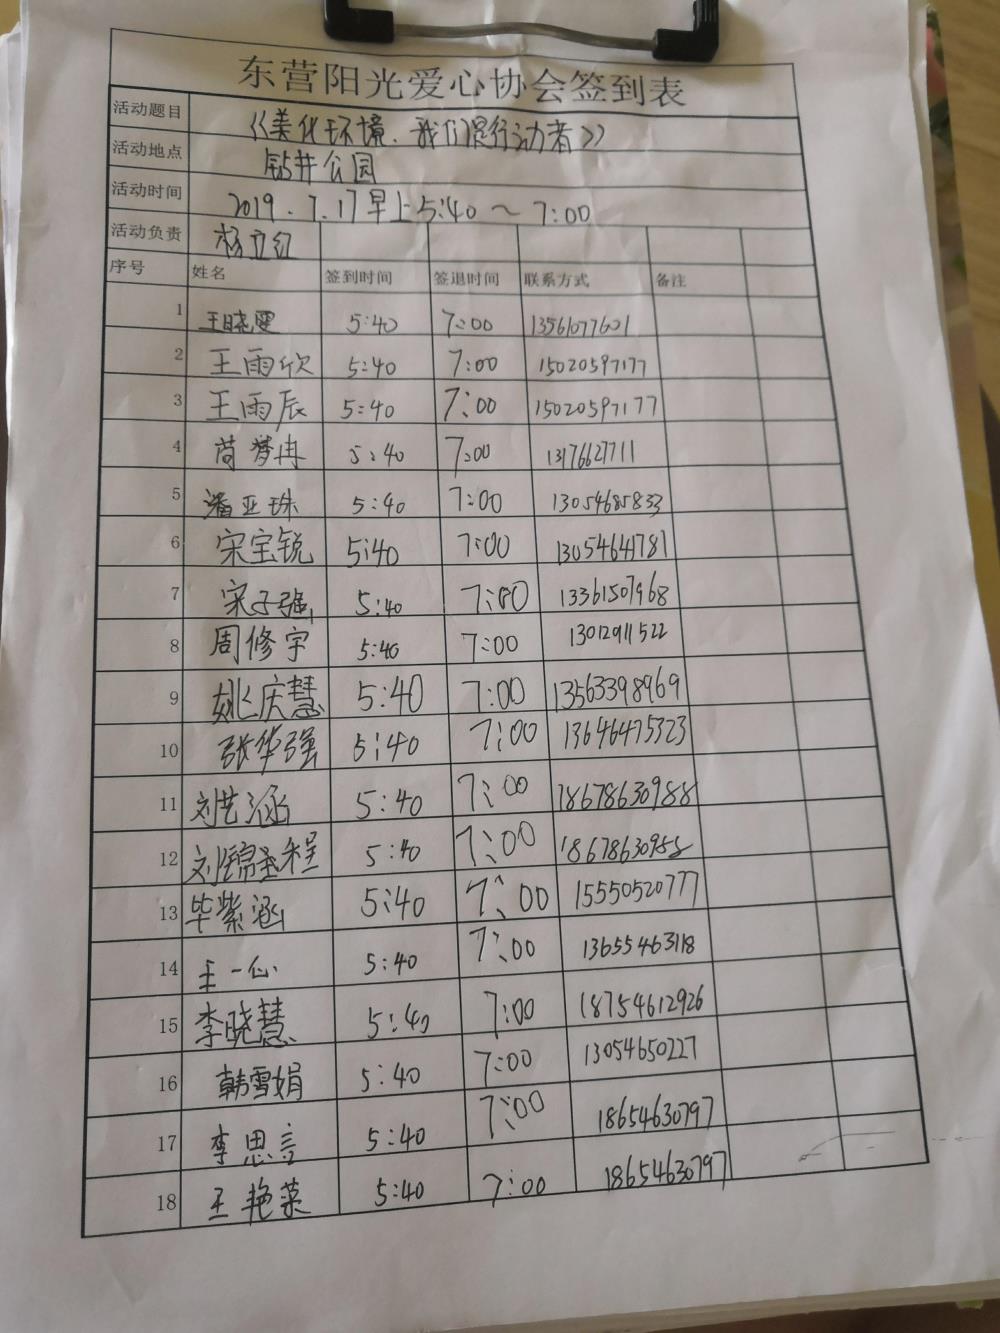 东营阳光爱心协会签到表
活动题目 《美化环境、我们是行动者》
活动地点 钻井公园
活动时间 2019.7.17早上5:40～7:00
活动负责 杨立红
序号 姓名 签到时间 签退时间 联系方式 备注
1 王晓雯 5:40 7:00 13561077601
2 王雨欣 5:40 7:00 15020597177
3 王雨辰 5:40 7:00 15020597177
4 苘梦冉 5:40 7:00 13176627711
5 潘亚珠 5:40 7:00 13054685833
6 宋宝锐 5:40 7:00 13054641781
7 宋子强 5:40 7:00 13361507968
8 周修宇 5:40 7:00 13012911522
9 姚庆慧 5:40 7:00 13563398969
10 张华强 5:40 7:00 13646475323
11 刘艺涵 5:40 7:00 18678630988
12 刘锦程 5:40 7:00 18678630988
13 毕紫涵 5:40 7:00 15550520777
14 王一心 5:40 7:00 13655463118
15 李晓慧 5:40 7:00 18754612926
16 韩雪娟 5:40 7:00 13054650227
17 李思言 5:40 7:00 18654630797
18 王艳菜 5:40 7:00 18654630797